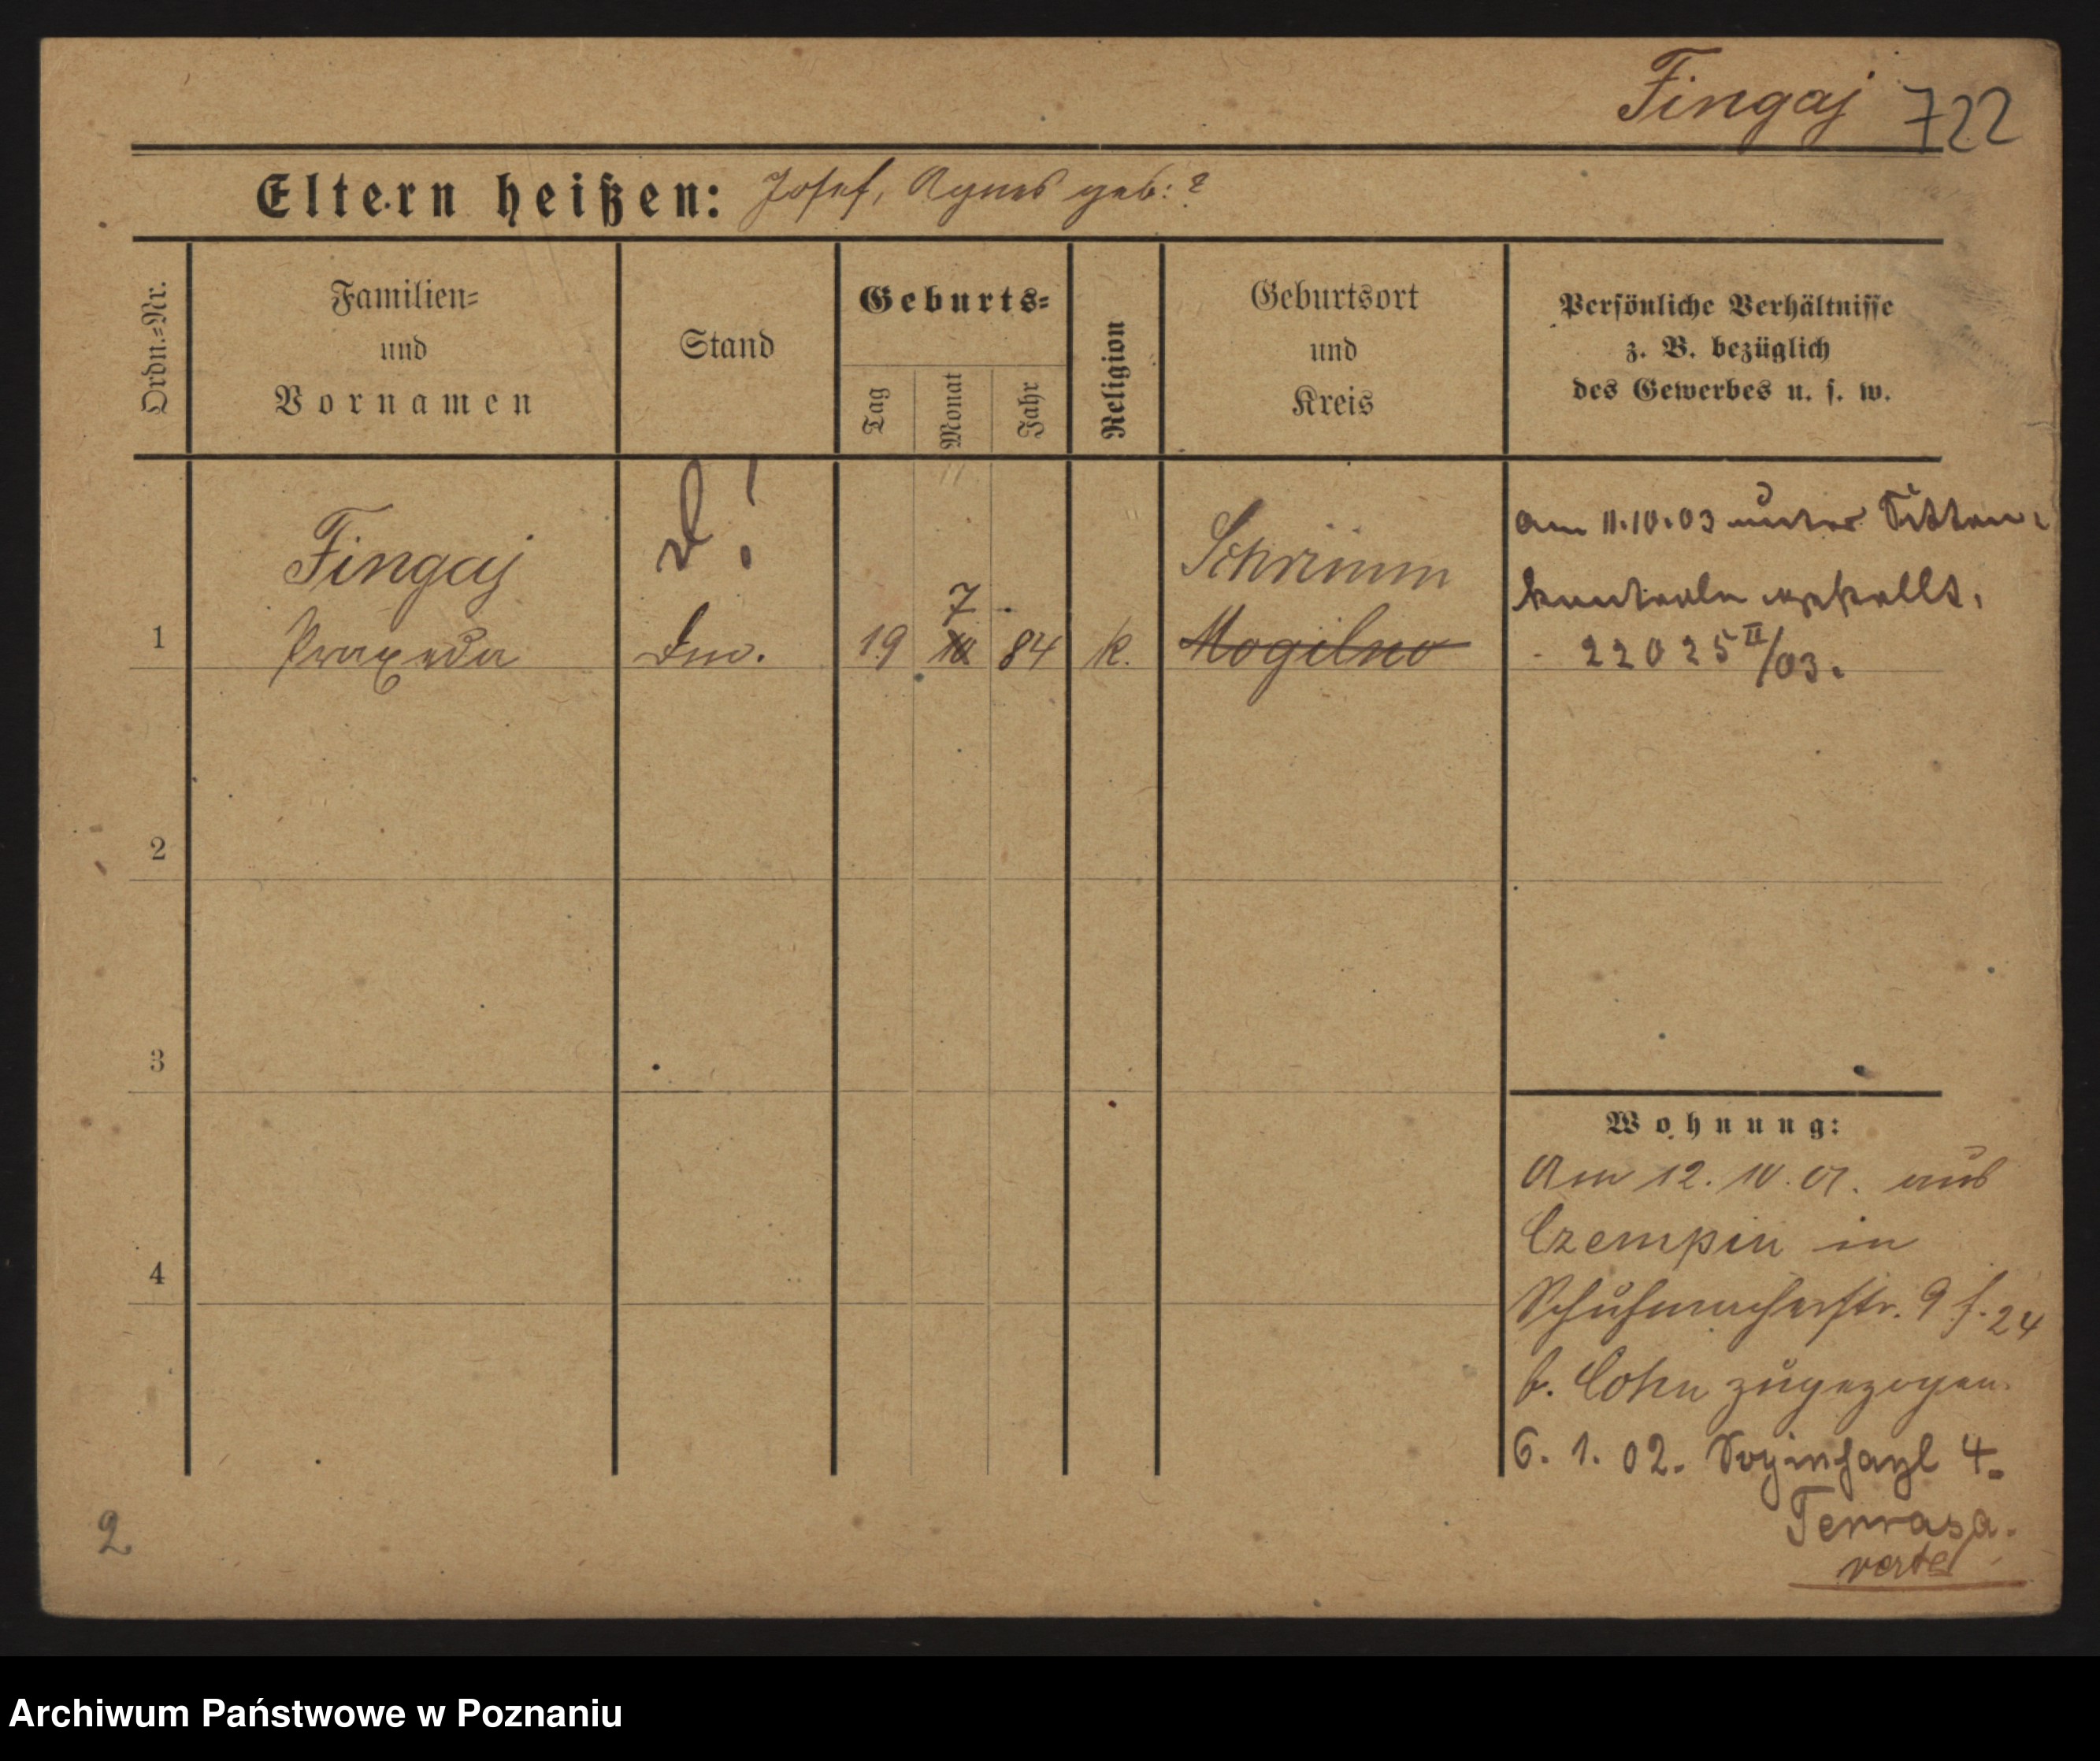 Fingaj 722
Eltern heißen: Josef, Agnes geb: ?
Ordn.=Nr.
Familien=
und
Vornamen
Stand
Geburts=
Tag
Monat
Jahr
Religion
Geburtsort
und
Kreis
Persönliche Verhältnisse
z. B. bezüglich
des Gewerbes u. s. w.
1
Fingaj
Praxeda
d!
19
7
10
84
k.
Schrimm
Mogilno
am 11.10.03 unter Sitten=
kontrole gestellt.
22025 II/03.
2
3
4
Wohnung:
Am 12. 10. 01. aus
Czempin in
Schuhmacherstr. 9 f. 24
b. Cohn zugezogen.
6. 1. 02. 4.
verte
2
Archiwum Państwowe w Poznaniu